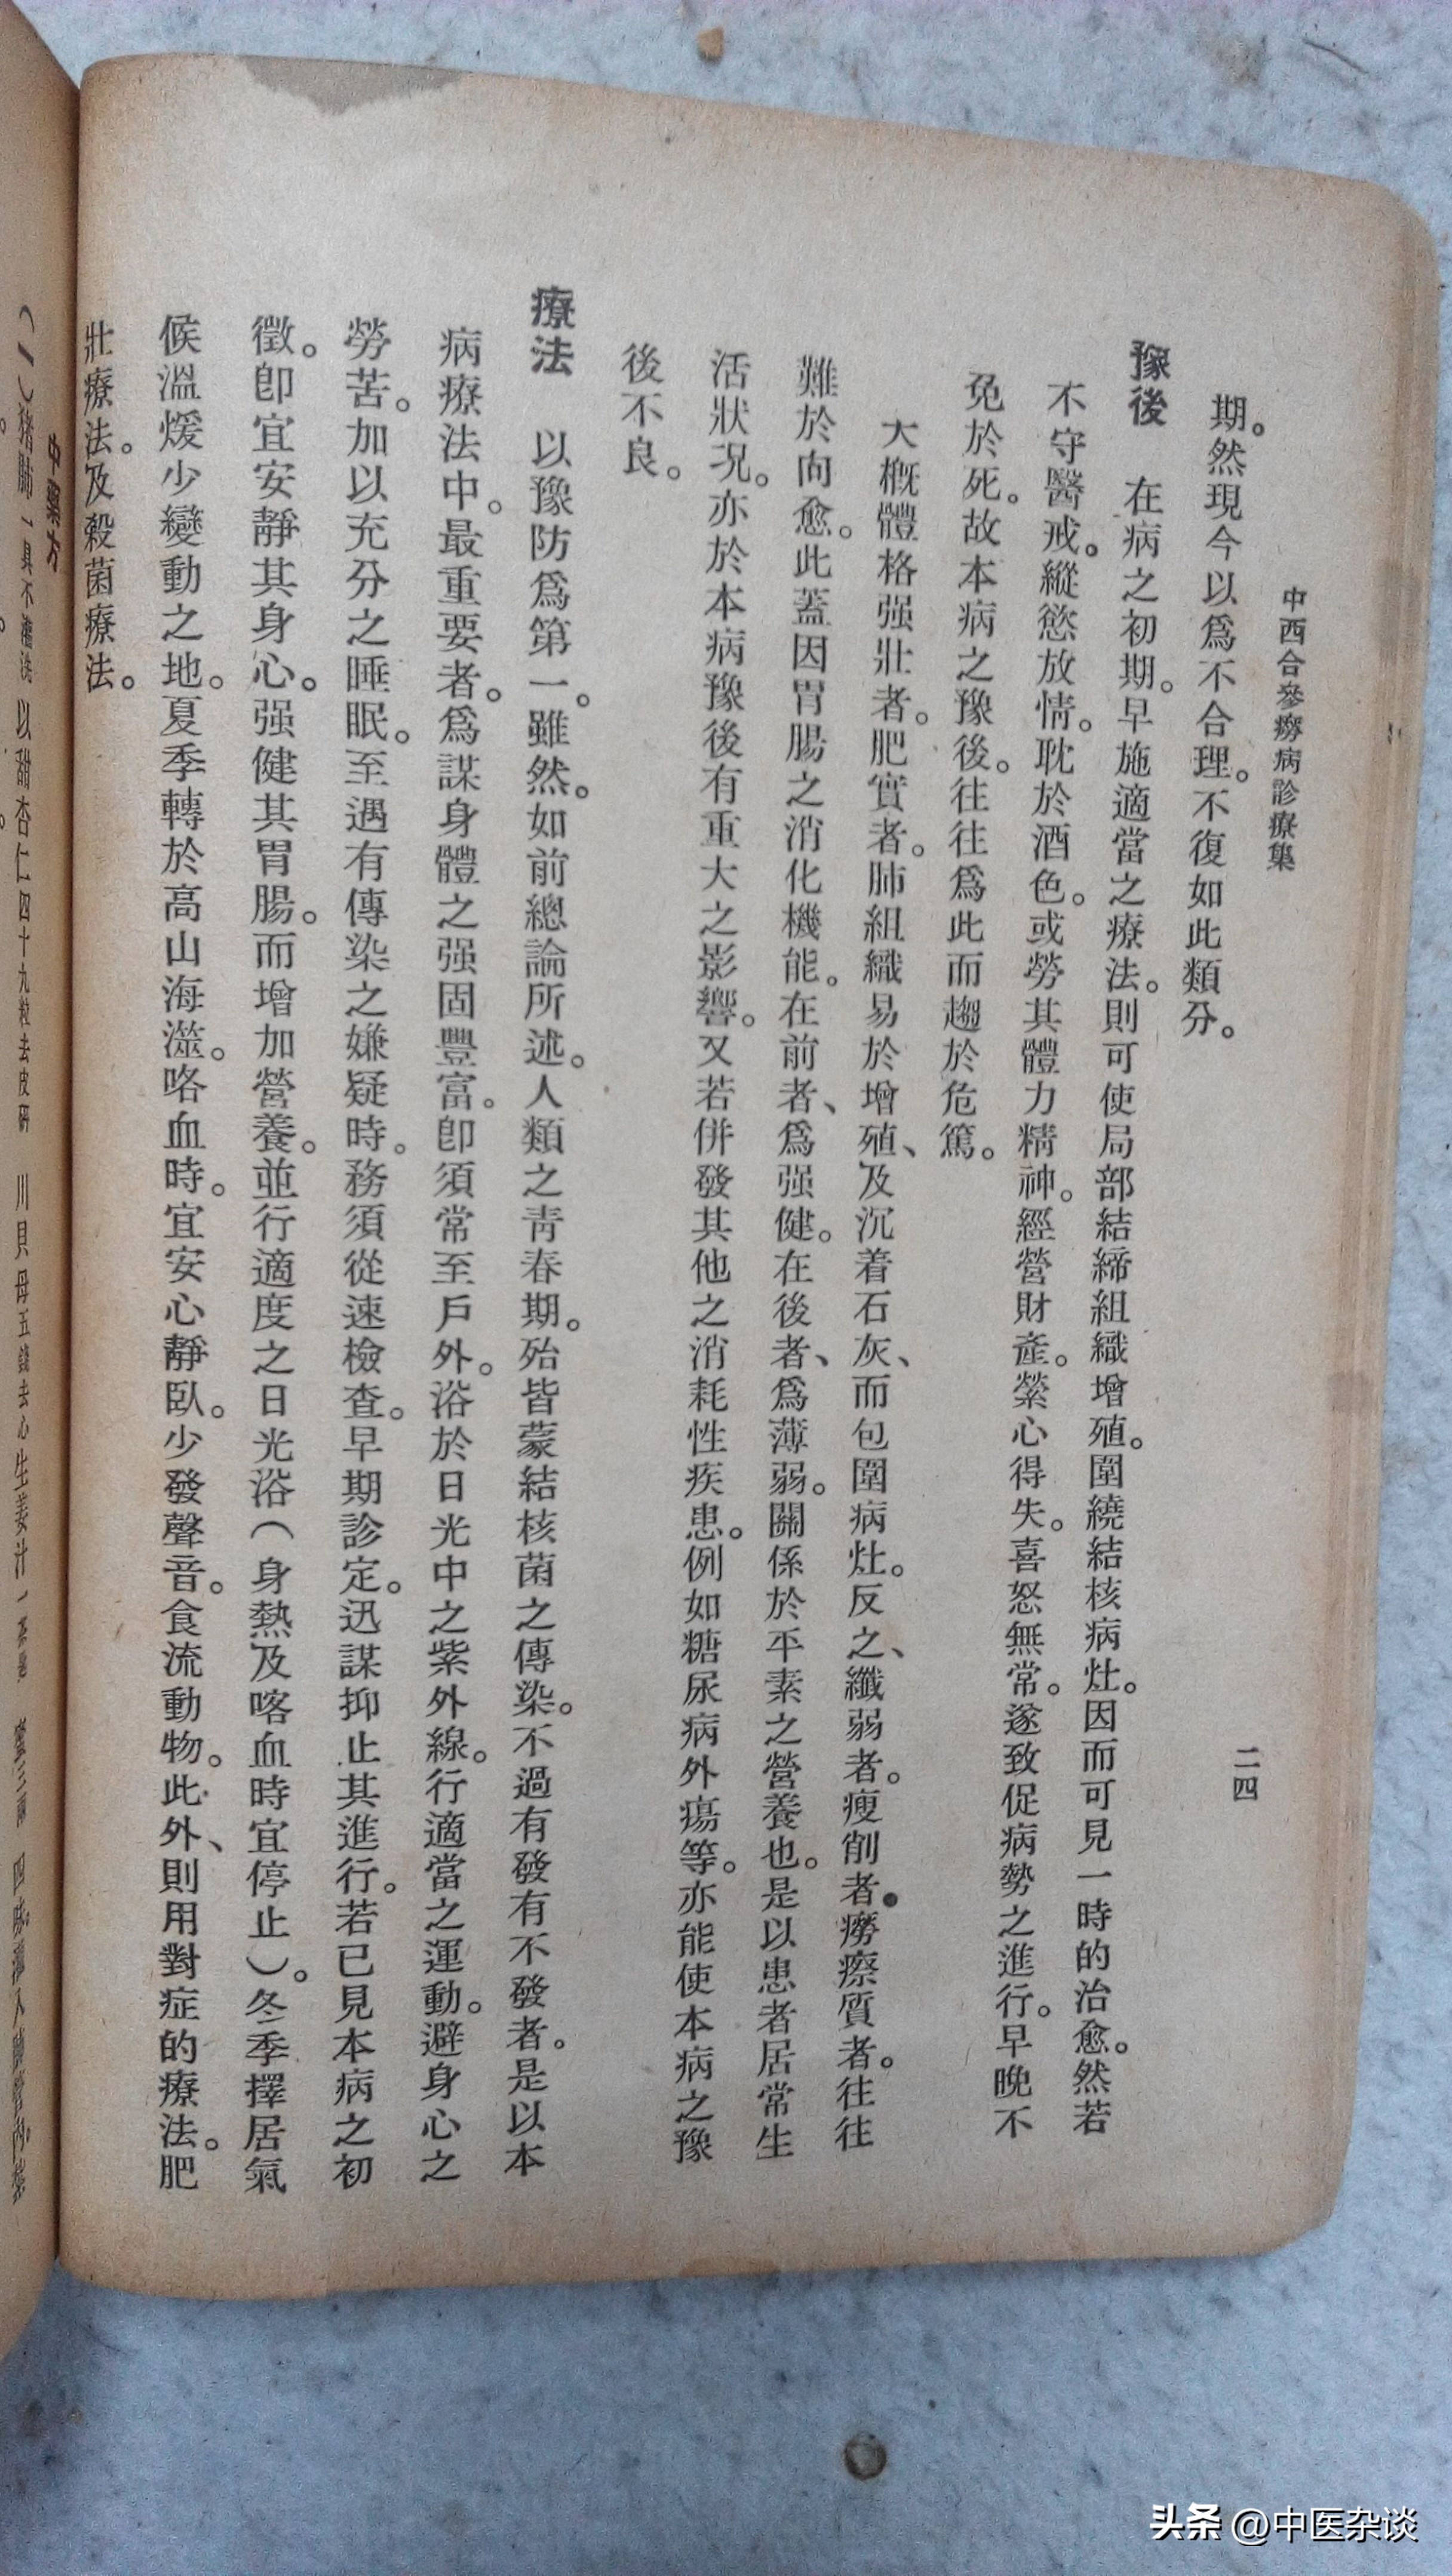 中西合參癆病診療集
二四
期。然現今以爲不合理。不復如此類分。
豫後　在病之初期。早施適當之療法。則可使局部結締組織增殖。圍繞結核病灶。因而可見一時的治愈。然若
不守醫戒。縱慾放情。耽於酒色。或勞其體力精神。經營財產。縈心得失。喜怒無常。遂致促病勢之進行。早晚不
免於死。故本病之豫後。往往爲此而趨於危篤。
大概體格强壯者。肥實者。肺組織易於增殖、及沉着石灰、而包圍病灶。反之、纖弱者。瘦削者。癆瘵質者。往往
難於向愈。此蓋因胃腸之消化機能。在前者、爲强健。在後者、爲薄弱。關係於平素之營養也。是以患者居常生
活狀况。亦於本病豫後有重大之影響。又若併發其他之消耗性疾患。例如糖尿病外瘍等。亦能使本病之豫
後不良。
療法　以豫防爲第一。雖然。如前總論所述。人類之靑春期。殆皆蒙結核菌之傳染。不過有發有不發者。是以本
病療法中。最重要者。爲謀身體之强固豐富。卽須常至戶外。浴於日光中之紫外線。行適當之運動。避身心之
勞苦。加以充分之睡眠。至遇有傳染之嫌疑時。務須從速檢查。早期診定。迅謀抑止其進行。若已見本病之初
徵。卽宜安靜其身心。强健其胃腸。而增加營養。並行適度之日光浴（身熱及喀血時宜停止）。冬季擇居氣
候溫煖少變動之地。夏季轉於高山海澨。咯血時。宜安心靜臥。少發聲音。食流動物。此外、則用對症的療法。肥
壯療法。及殺菌療法。
中藥方
（一）豬肺一具不 以甜杏仁四十九粒去皮研　川貝母五錢去心生姜汁一
头条 @中医杂谈